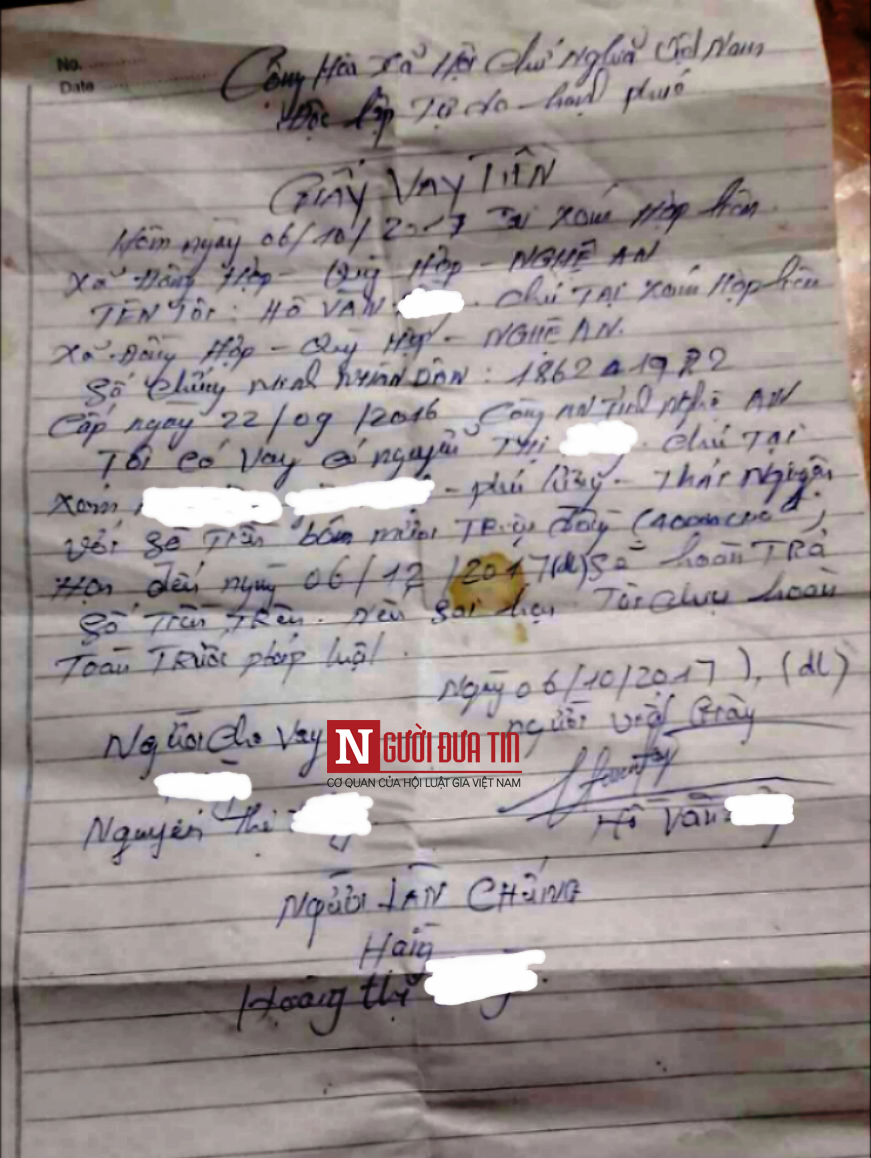 No. ............
Date ....................
Cộng Hòa Xã Hội Chủ Nghĩa Việt Nam
Độc lập Tự do - hạnh phúc
GIẤY VAY TIỀN
Hôm ngày 06/10/2017 Tại xóm Hợp liên
Xã Đồng Hợp - Quỳ Hợp - NGHỆ AN
TÊN Tôi: HỒ VĂN . Chú TẠI xóm Hợp liên
Xã Đồng Hợp - Quỳ Hợp - NGHỆ AN.
Số Chứng minh NHÂN DÂN: 1862
Cấp ngày 22/09/2016 Công AN Tỉnh Nghệ AN
Tôi Có Vay Nguyễn THị . Chú TẠI
Xóm - phú - Thái Nguyên
Với Số Tiền bốn mươi Triệu đồng
Hẹn đến ngày 06/12/2017 (dl) Sẽ hoàn TRẢ
Số Tiền Trên. Nếu Sai hẹn Tôi chịu hoàn
Toàn Trước pháp luật.
Ngày 06/10/2017), (dl)
Người Cho Vay
người viết Giấy
NGƯỜI ĐƯA TIN
CƠ QUAN CỦA HỘI LUẬT GIA VIỆT NAM
Nguyễn Thị
Hồ Văn
NGƯỜI LÀM CHỨNG
Hoàng thị